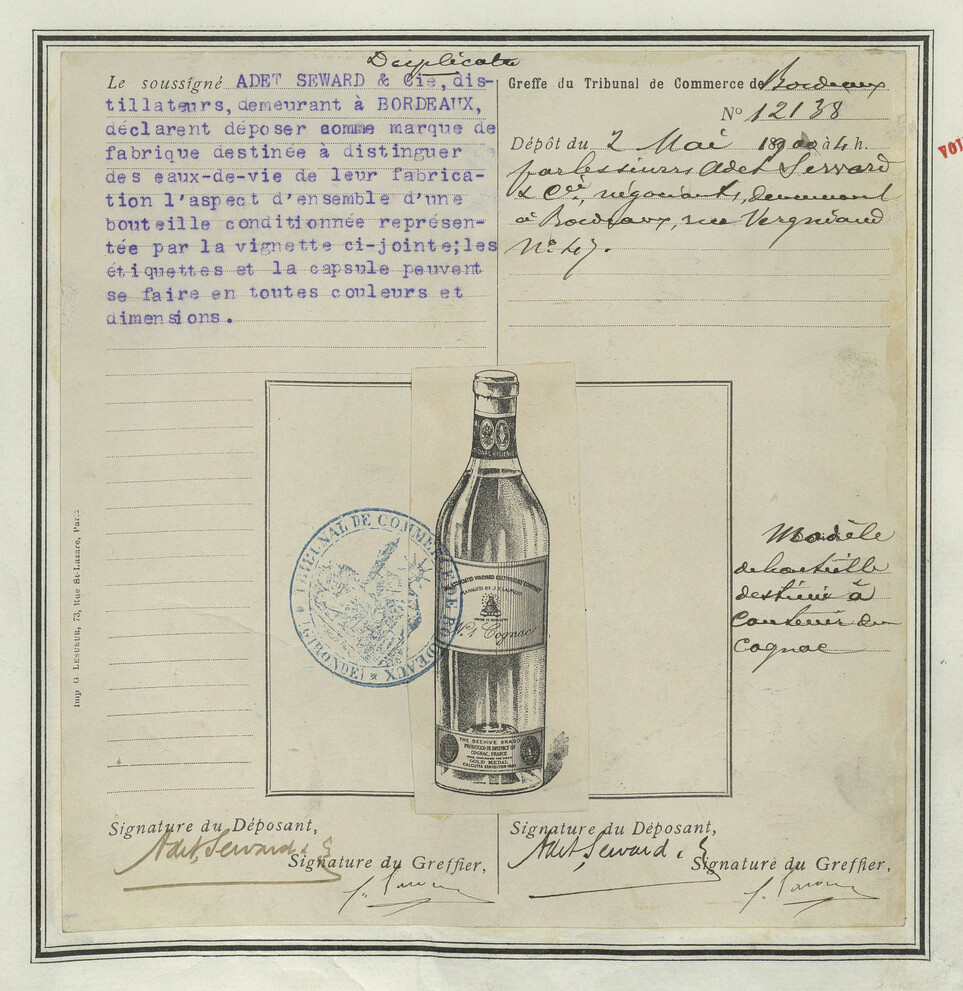 Duplicata
Le soussigné ADET SEWARD & Cie, dis-
tillateurs, demeurant à BORDEAUX,
déclarent déposer comme marque de
fabrique destinée à distinguer
des eaux-de-vie de leur fabrica-
tion l'aspect d'ensemble d'une
bouteille conditionnée représen-
tée par la vignette ci-jointe; les
étiquettes et la capsule peuvent
se faire en toutes couleurs et
dimensions.
Greffe du Tribunal de Commerce de Bordeaux
No 12138
Dépôt du 2 Mai 1900 à 4 h.
par les sieurs Adet Serward
& Cie, négociants, demeurant
à Bordeaux, rue Vergniaud
No 47.
VOI
TRIBUNAL DE COMMERCE DE BORDEAUX
* (GIRONDE) *
ASSOCIATED VINEYARD
MANAGED BY J.
No 1 Cognac
THE BEEHIVE BRAND
PRODUCED IN DISTRICT OF
COGNAC, FRANCE
GOLD MEDAL
CALCUTTA EXHIBITION
Modèle
de bouteille
destinée à
contenir du
cognac
Imp G LESUEUR, 73, Rue St-Lazare, Paris
Signature du Déposant,
Adet, Seward &
Signature du Greffier,
Signature du Déposant,
Adet, Seward &
Signature du Greffier,